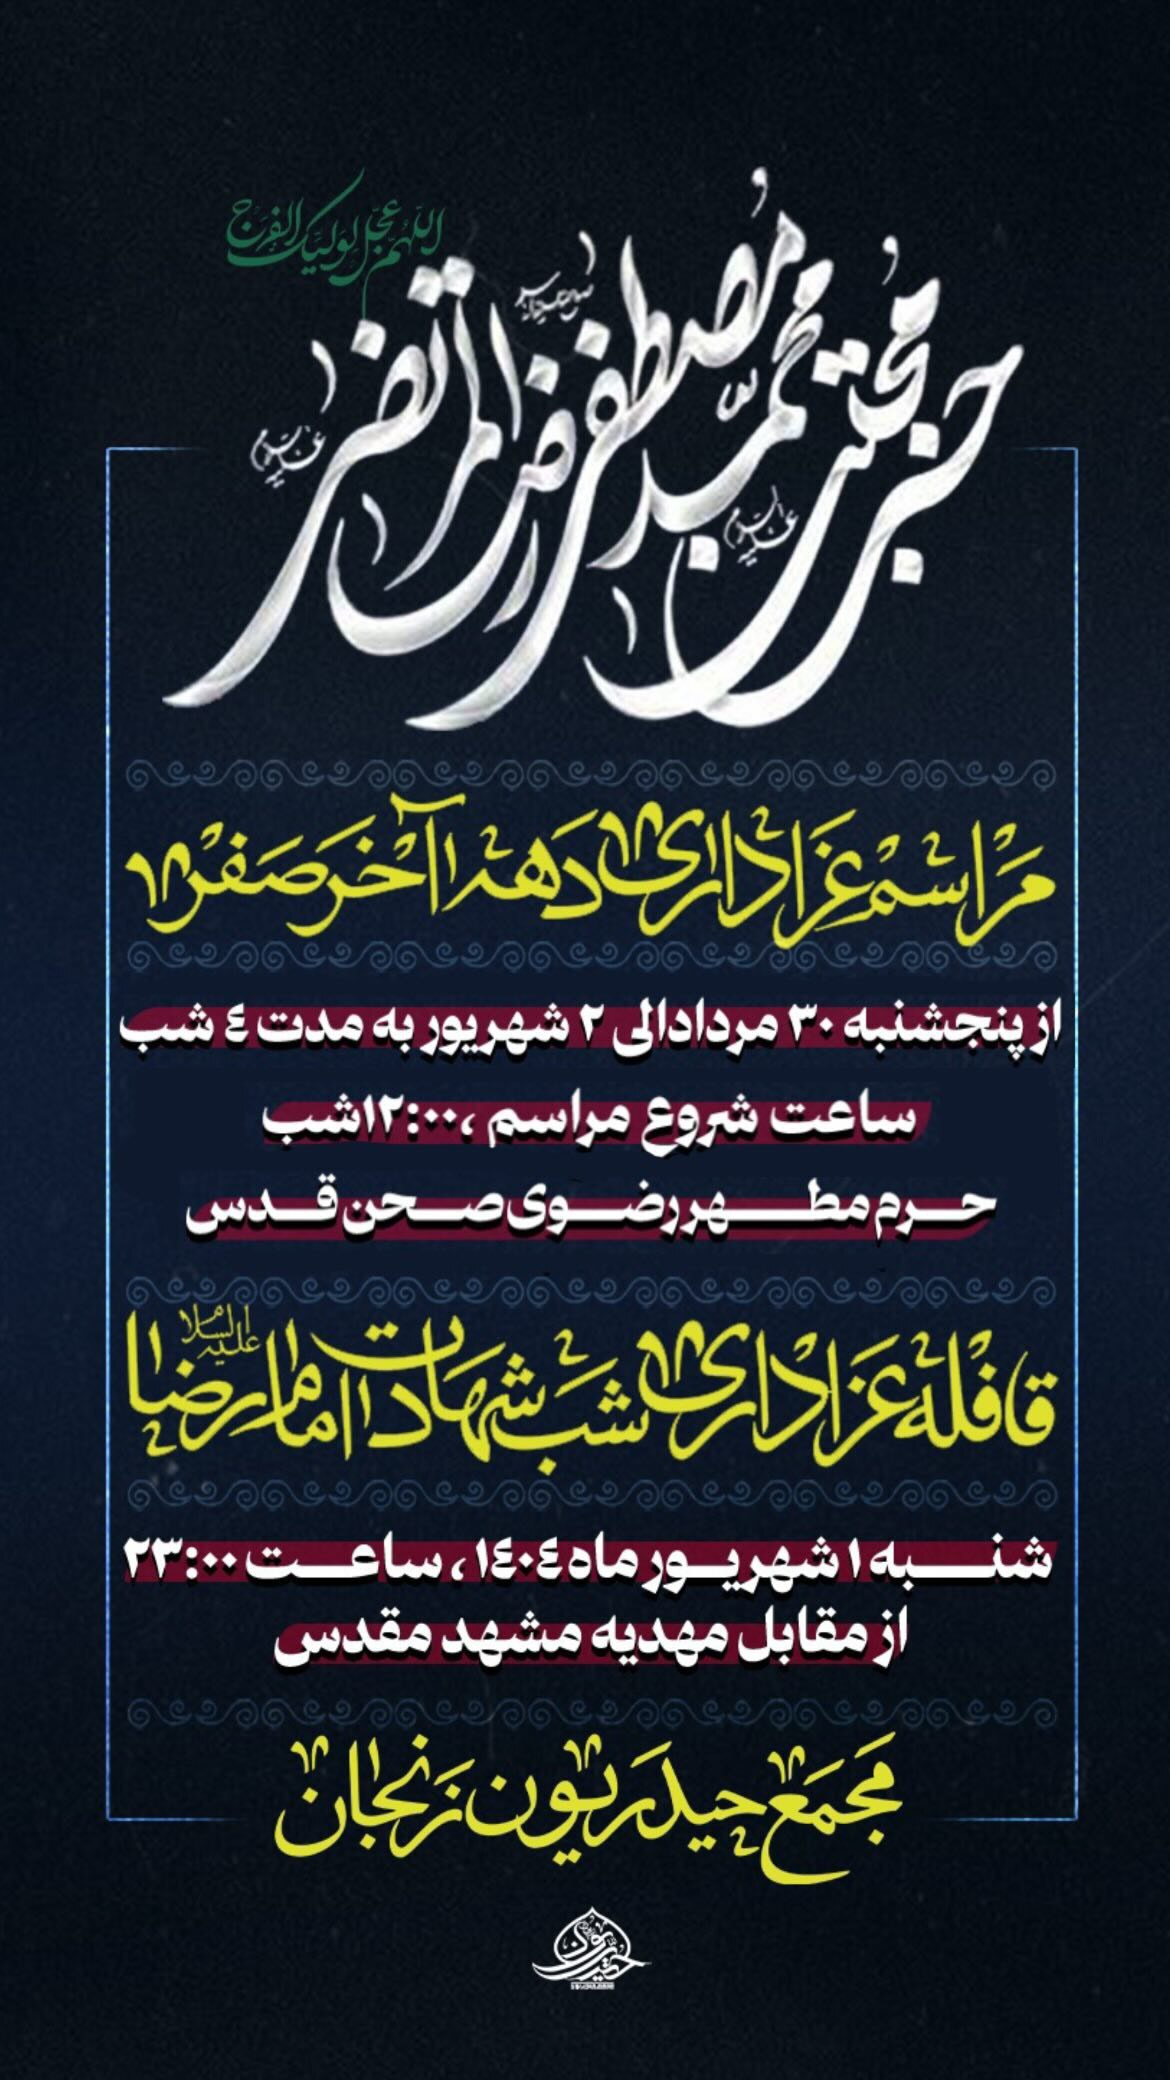 اللهم عجل لولیک الفرج
حسن مجتبی علیه السلام محمد مصطفی رضا المرتضی علیه السلام
مراسم عزاداری دهه آخر صفر
از پنجشنبه ۳۰ مردادالی ۲ شهریور به مدت ٤ شب
ساعت شروع مراسم ،۱۲:۰۰شب
حرم مطهر رضوی صحن قدس
قافله عزاداری شب شهادت امام رضا علیه السلام
شنبه ۱ شهریور ماه ۱٤۰٤ ، ساعت ۲۳:۰۰
از مقابل مهدیه مشهد مقدس
مجمع حیدریون زنجان